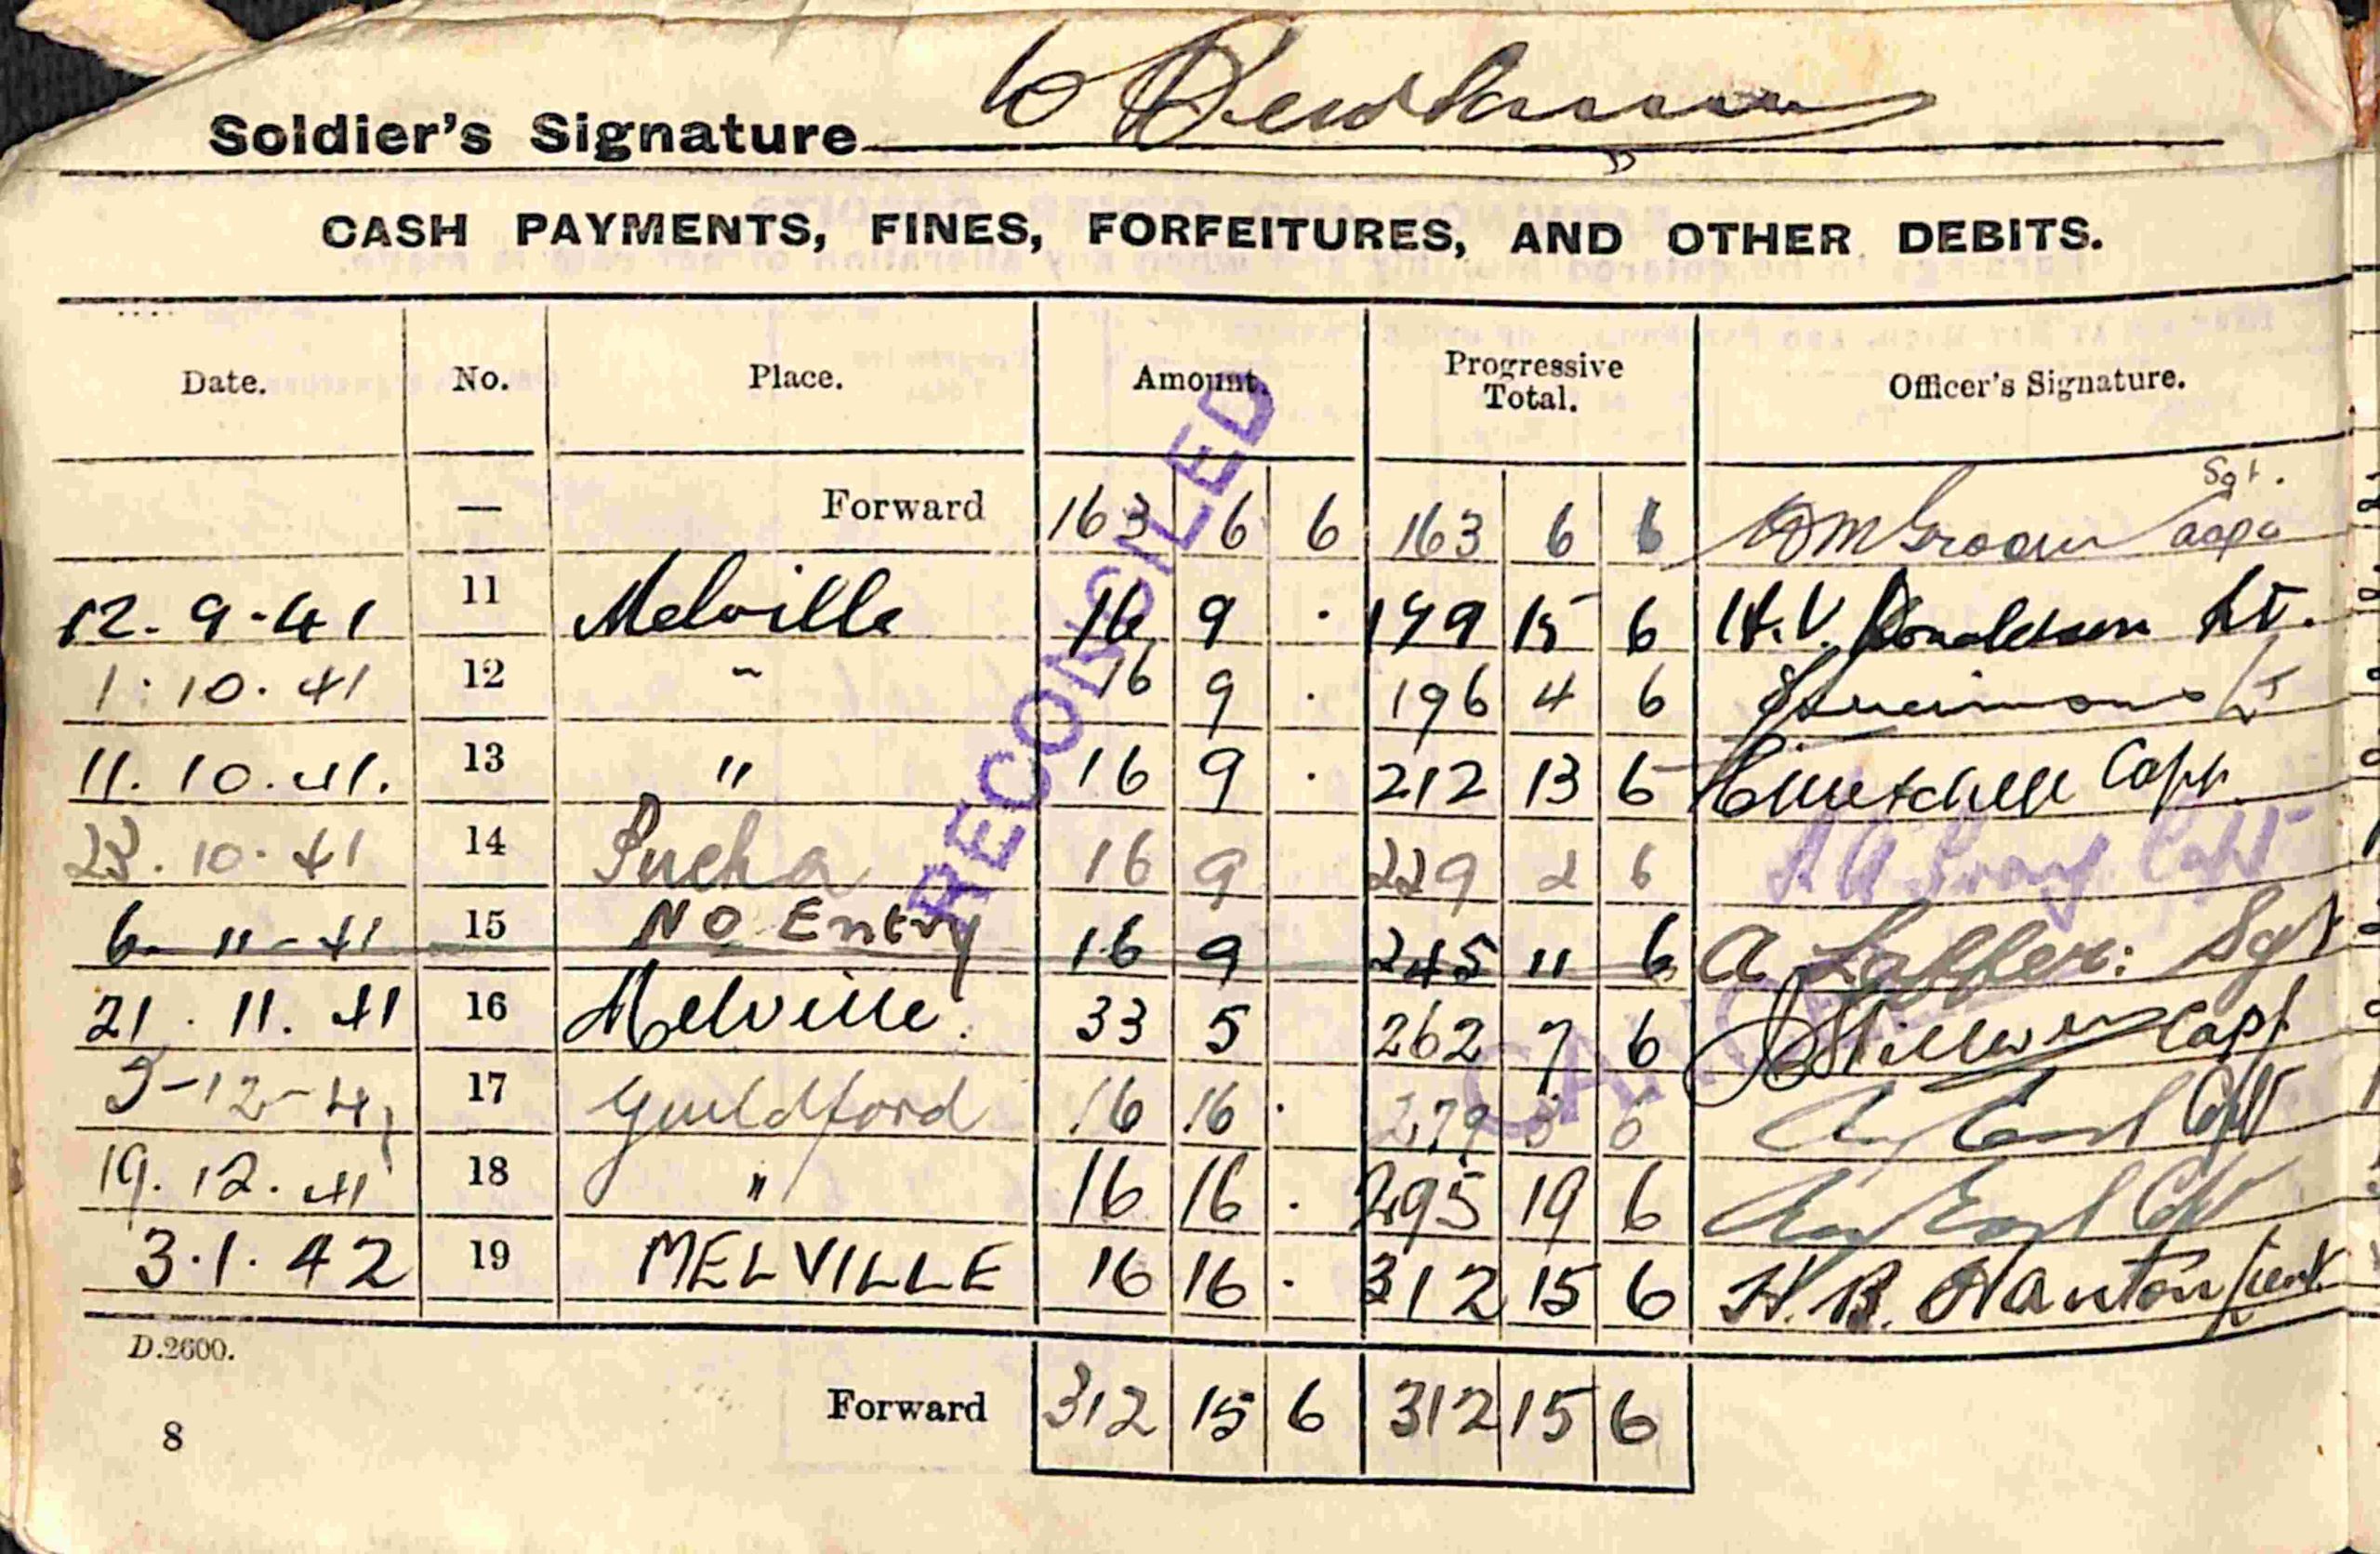 Soldier's Signature
CASH PAYMENTS, FINES, FORFEITURES, AND OTHER DEBITS.
Date. No. Place. Amount. Progressive Total. Officer's Signature.
Sgt.
— Forward 163 6 6 163 6 6
12. 9. 41 11 Melville 16 9 · 179 15 6 H.V. Donaldson Lt.
1. 10. 41 12 " 16 9 · 196 4 6 Lt
11. 10. 41. 13 " 16 9 · 212 13 6 Capt.
23. 10. 41 14 16 9 229 2 6 Capt
6 - 11 - 41 15 NO Entry 16 9 245 11 6 A Sgt
21. 11. 41 16 Melville. 33 5 262 7 6 Capt
5-12-41 17 Guildford 16 16 · 279 3 6 Capt
19. 12. 41 18 " 16 16 · 295 19 6 Capt
3. 1. 42 19 MELVILLE 16 16 · 312 15 6 H. B. Lieut
RECONCILED
D.2600.
Forward 312 15 6 312 15 6
8